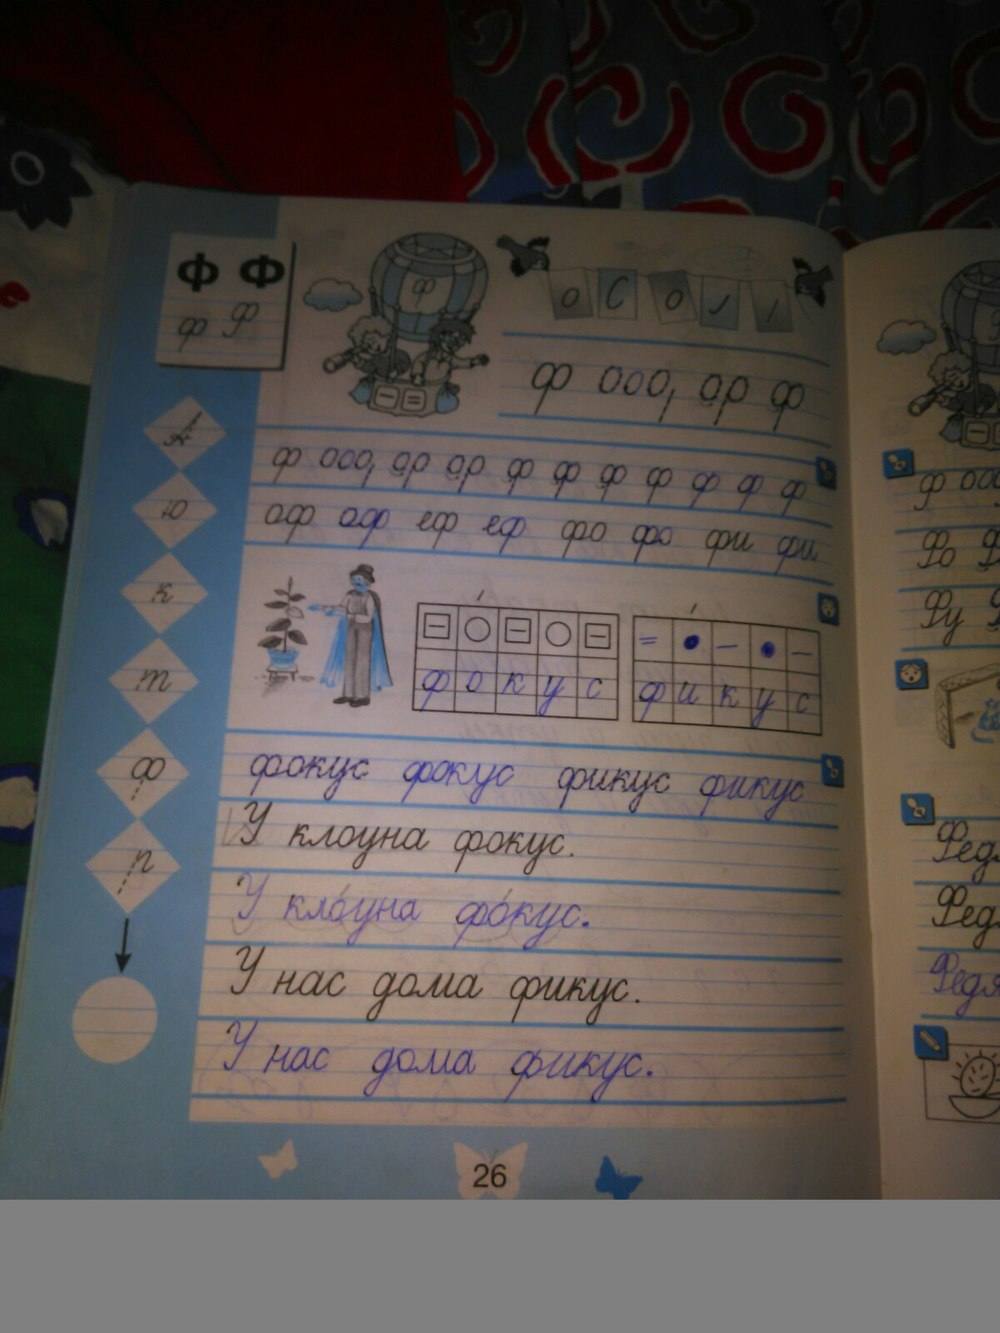 Ф Ф
ф Ф
ф
о С о л ı
ф ооо, ар ф
ф ооо, ар ар ф ф ф ф ф ф ф
ю
оф оф еф еф фо фо фи фи
к
т
ф о к у с
= • – • –
ф и к у с
ф
фокус фокус фикус фикус
У клоуна фокус.
п
У кло́уна фо́кус.
У нас дома фикус.
У нас дома фикус.
26
ф оо
Фо
Фу
Федя
Федя
Федя